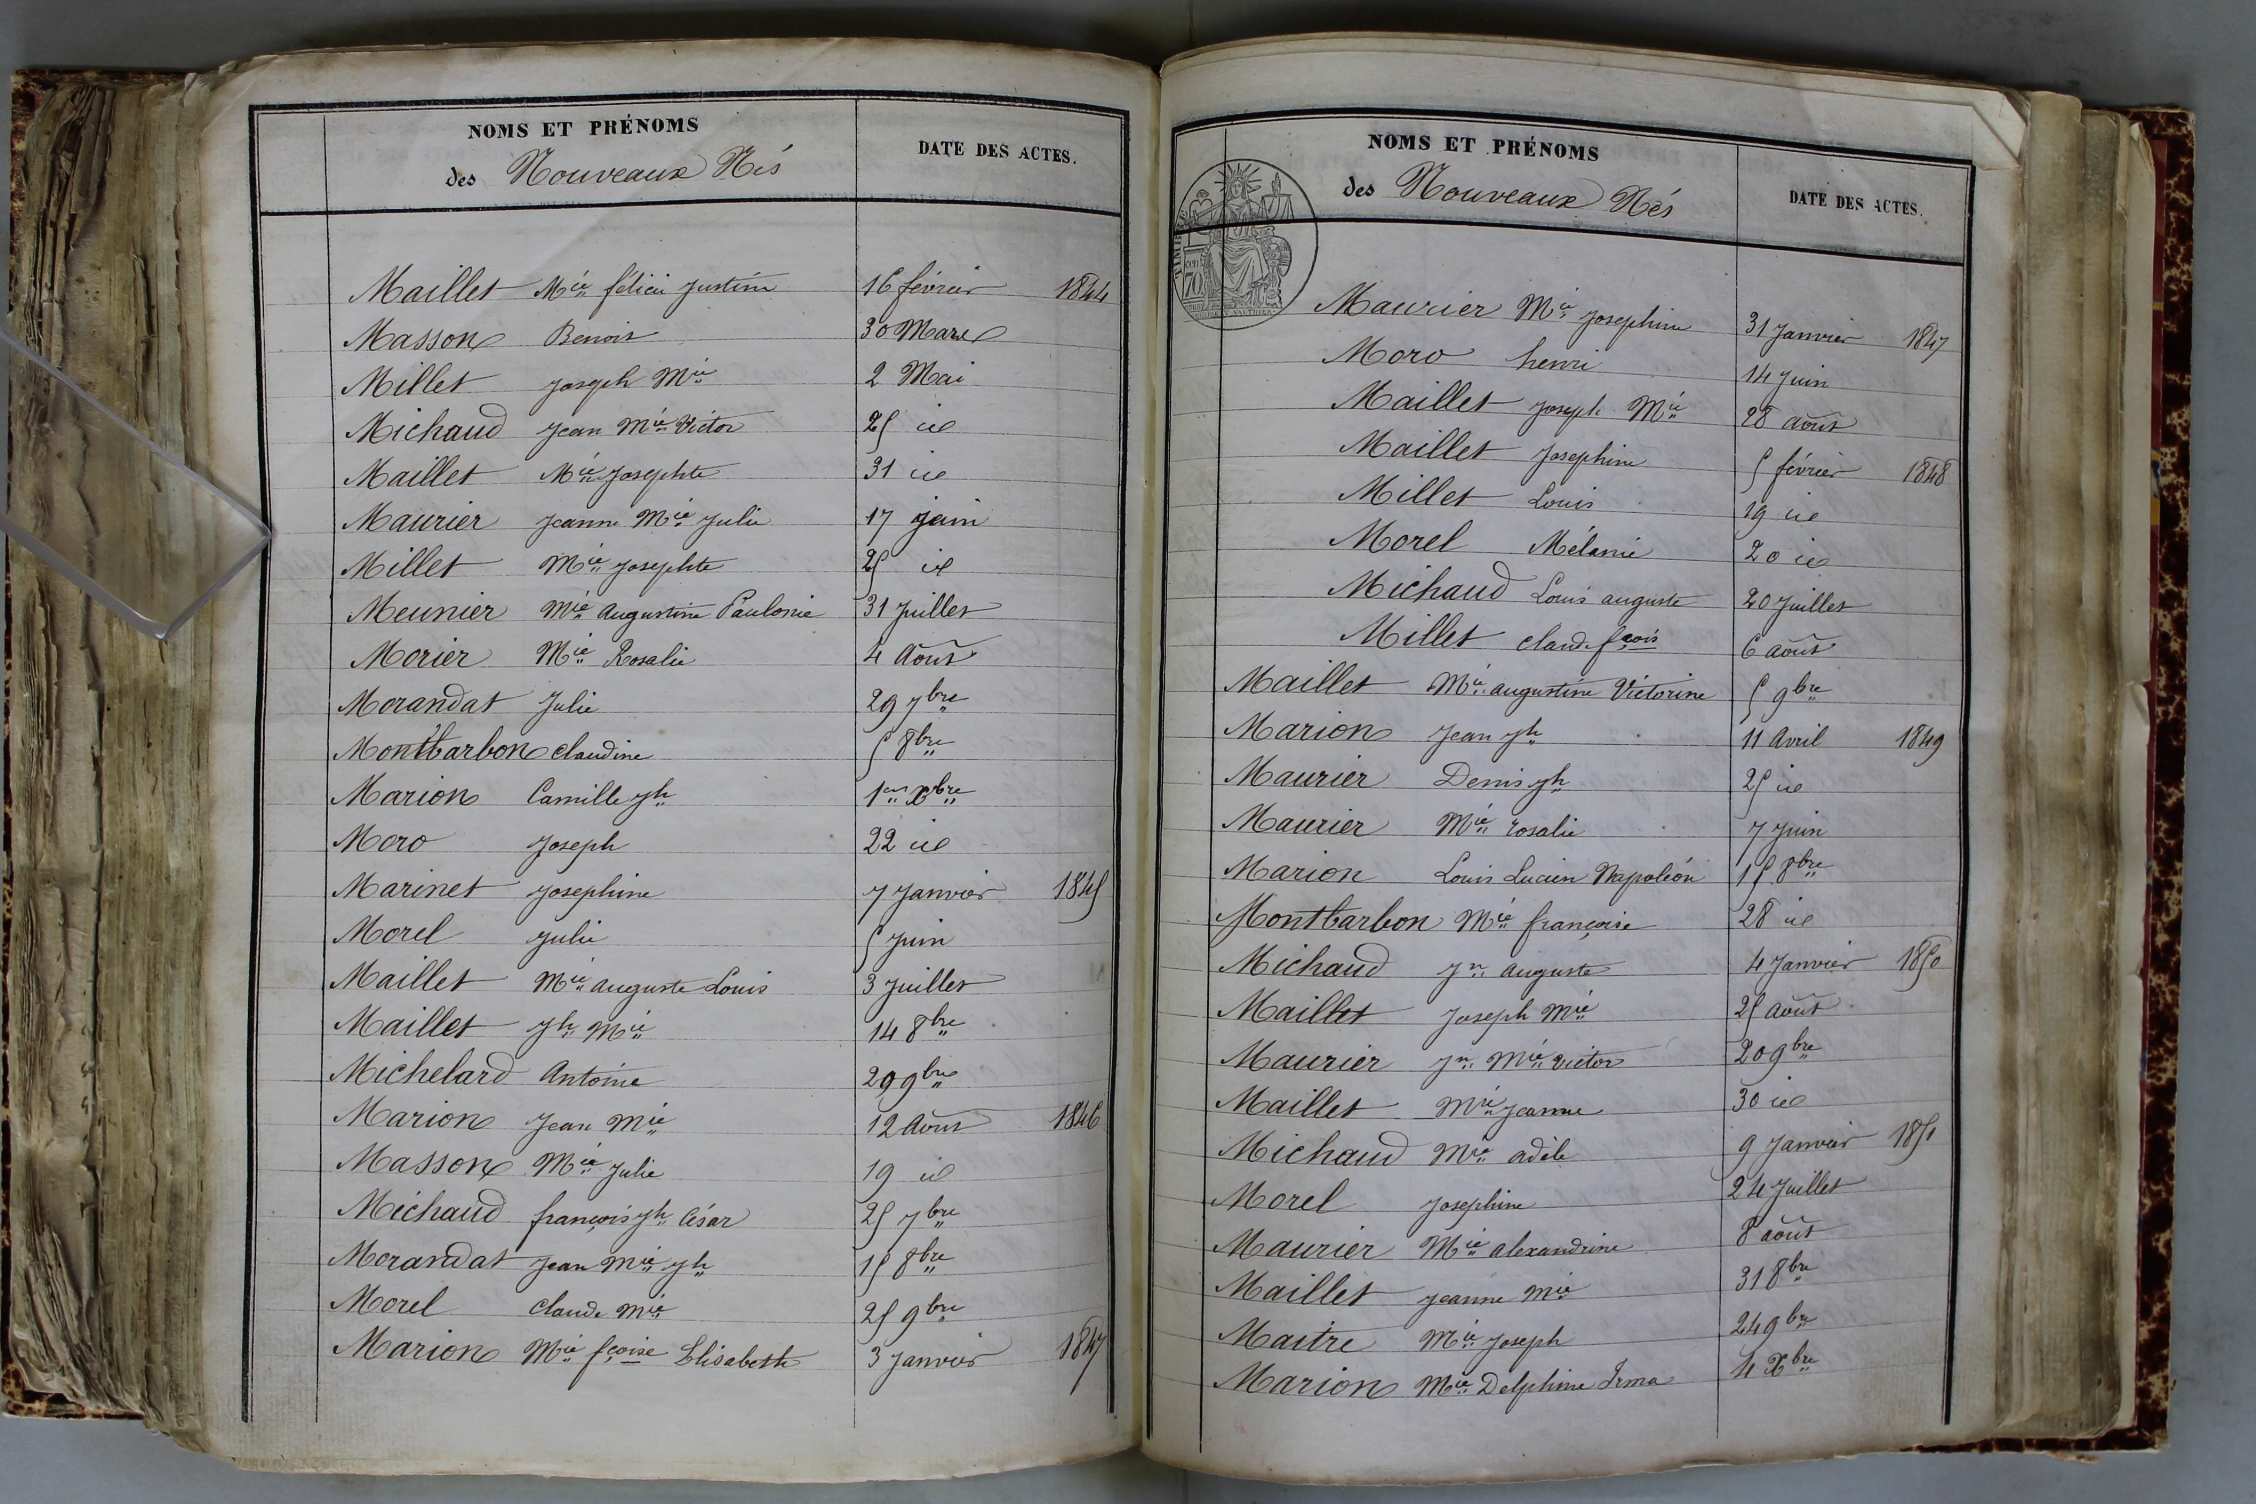 NOMS ET PRÉNOMS
des Nouveaux Nés
DATE DES ACTES.
Maillet Mie félicie justine 16 février 1844
Masson Benoit 30 Mars
Millet joseph Mie 2 Mai
Michaud jean Mie Victor 25 id
Maillet Mie josephte 31 id
Maurier jeanne Mie julie 17 juin
Millet Mie josephte 25 id
Meunier Mie augustine Paulonie 31 juillet
Morier Mie Rosalie 4 Août
Morandat julie 29 7bre
Montbarbon claudine 5 8bre
Marion Camille jh 1er Xbre
Moro joseph 22 id
Marinet josephine 7 janvier 1845
Morel julie 5 juin
Maillet Mie auguste Louis 3 juillet
Maillet jh Mie 14 8bre
Michelard Antoine 29 9bre
Marion jean Mie 12 Août 1846
Masson Mie julie 19 id
Michaud françois jh César 25 7bre
Morandat jean Mie jh 15 8bre
Morel claude Mie 25 9bre
Marion Mie fçoise Elisabeth 3 janvier 1847
NOMS ET PRÉNOMS
des Nouveaux Nés
DATE DES ACTES.
70
Maurier Mie josephine 31 janvier 1847
Moro henri 14 juin
Maillet joseph Mie 28 août
Maillet josephine 5 février 1848
Millet Louis 19 id
Morel Mélanie 20 id
Michaud Louis auguste 20 juillet
Millet claude fçois 6 août
Maillet Mie augustine Victorine 5 9bre
Marion jean jh 11 avril 1849
Maurier Denis jh 25 id
Maurier Mie rosalie 7 juin
Marion Louis Lucien Napoléon 15 8bre
Montbarbon Mie françoise 28 id
Michaud jn auguste 4 janvier 1850
Maillet joseph Mie 25 août
Maurier jn Mie victor 20 9bre
Maillet Mie jeanne 30 id
Michaud Mie adèle 9 janvier 1851
Morel josephine 24 juillet
Maurier Mie alexandrine 8 août
Maillet jeanne Mie 31 8bre
Maitre Mie joseph 24 9bre
Marion Mie Delphine Irma 4 Xbre